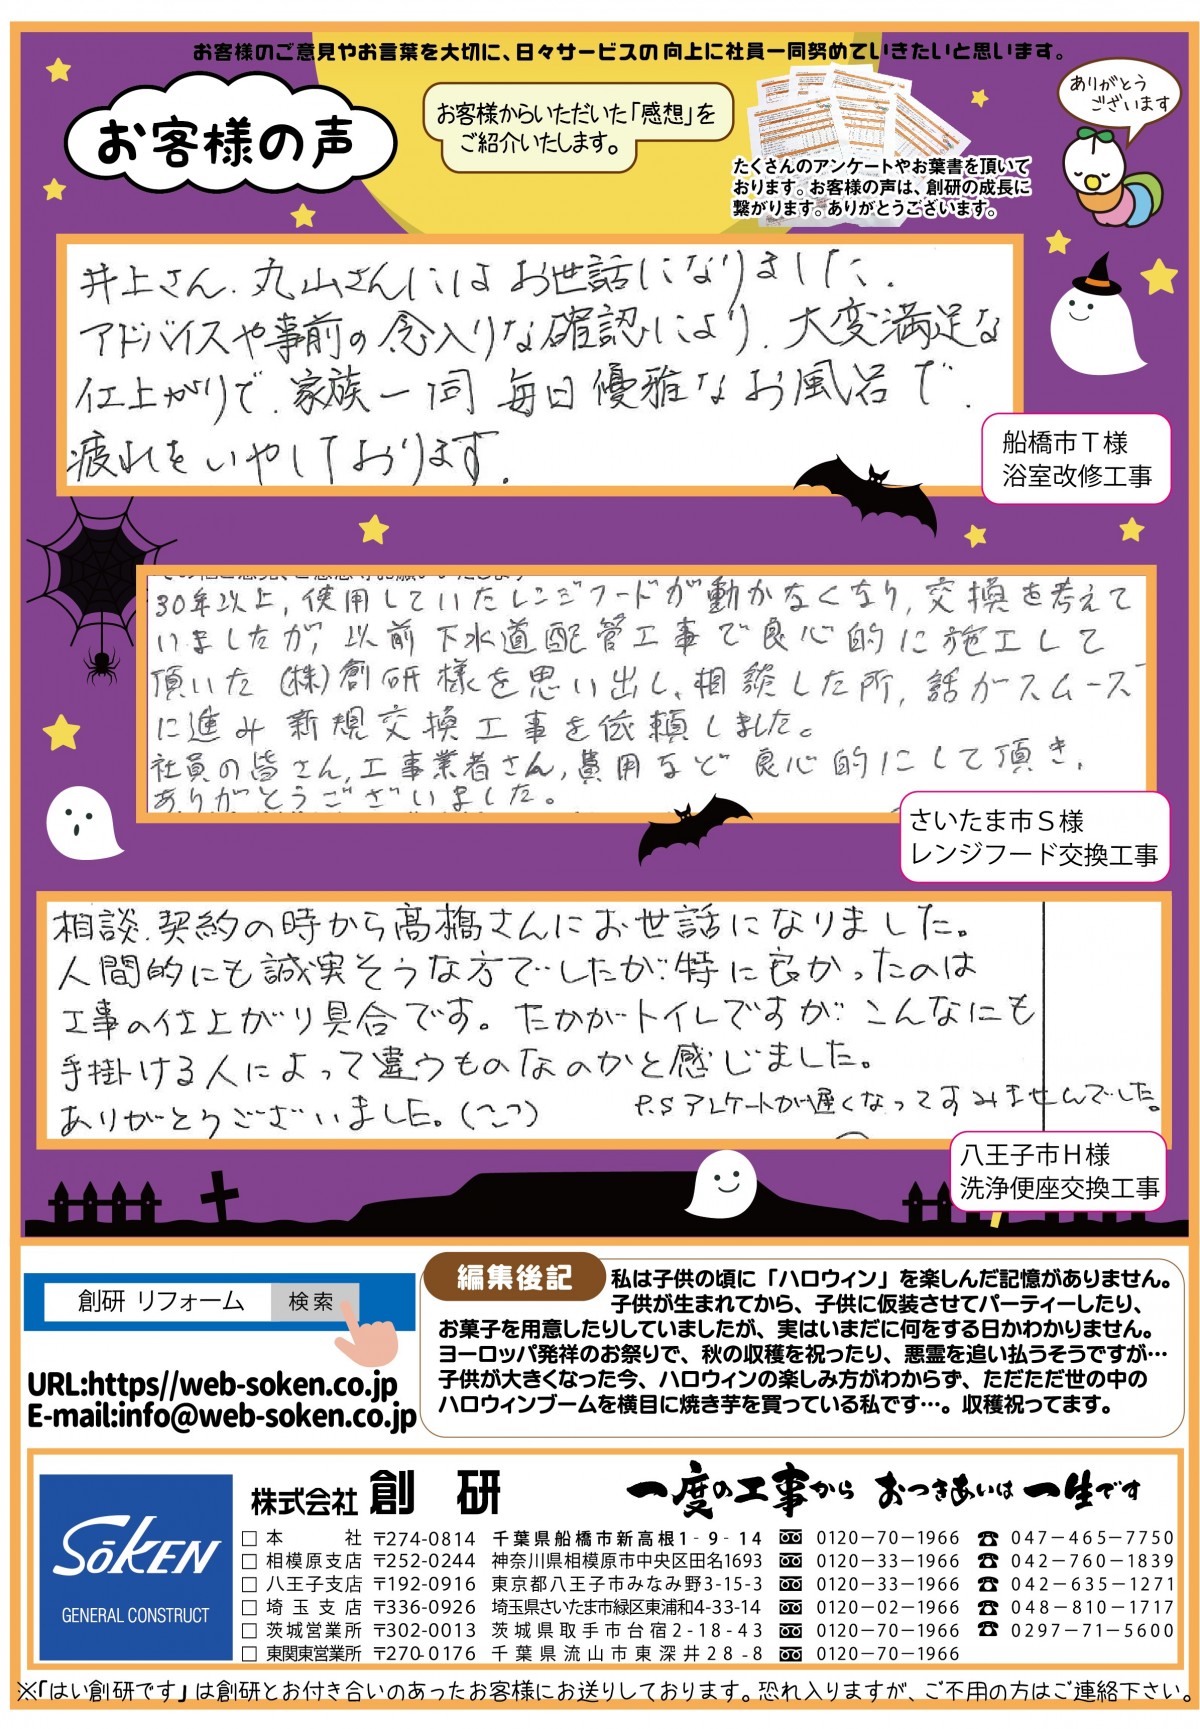 お客様のご意見やお言葉を大切に、日々サービスの向上に社員一同努めていきたいと思います。
お客様の声
お客様からいただいた「感想」を
ご紹介いたします。
たくさんのアンケートやお葉書を頂いて
おります。お客様の声は、創研の成長に
繋がります。ありがとうございます。
ありがとう
ございます
井上さん、丸山さんにはお世話になりました。
アドバイスや事前の念入りな確認により、大変満足な
仕上がりで、家族一同 毎日優雅なお風呂で、
疲れをいやしております。
船橋市T様
浴室改修工事
30年以上、使用していたレンジフードが動かなくなり、交換を考えて
いましたが、以前下水道配管工事で良心的に施工して
頂いた(株)創研様を思い出し、相談した所、話がスムーズ
に進み新規交換工事を依頼しました。
社員の皆さん、工事業者さん、費用など良心的にして頂き、
ありがとうございました。
さいたま市S様
レンジフード交換工事
相談、契約の時から髙橋さんにお世話になりました。
人間的にも誠実そうな方でしたが、特に良かったのは
工事の仕上がり具合です。たかがトイレですが、こんなにも
手掛ける人によって違うものなのかと感じました。
ありがとうございました。(^^)
P.S アンケートが遅くなってすみませんでした。
八王子市H様
洗浄便座交換工事
創研 リフォーム 検索
URL:https//web-soken.co.jp
E-mail:info@web-soken.co.jp
編集後記
私は子供の頃に「ハロウィン」を楽しんだ記憶がありません。
子供が生まれてから、子供に仮装させてパーティーしたり、
お菓子を用意したりしていましたが、実はいまだに何をする日かわかりません。
ヨーロッパ発祥のお祭りで、秋の収穫を祝ったり、悪霊を追い払うそうですが…
子供が大きくなった今、ハロウィンの楽しみ方がわからず、ただただ世の中の
ハロウィンブームを横目に焼き芋を買っている私です…。収穫祝ってます。
SōKEN
GENERAL CONSTRUCT
株式会社 創研 一度の工事から おつきあいは 一生です
□本社 〒274-0814 千葉県船橋市新高根1-9-14 0120-70-1966 ☎ 047-465-7750
□相模原支店 〒252-0244 神奈川県相模原市中央区田名1693 0120-33-1966 ☎ 042-760-1839
□八王子支店 〒192-0916 東京都八王子市みなみ野3-15-3 0120-33-1966 ☎ 042-635-1271
□埼玉支店 〒336-0926 埼玉県さいたま市緑区東浦和4-33-14 0120-02-1966 ☎ 048-810-1717
□茨城営業所 〒302-0013 茨城県取手市台宿2-18-43 0120-70-1966 ☎ 0297-71-5600
□東関東営業所 〒270-0176 千葉県流山市東深井28-8 0120-70-1966
※「はい創研です」は創研とお付き合いのあったお客様にお送りしております。恐れ入りますが、ご不用の方はご連絡下さい。